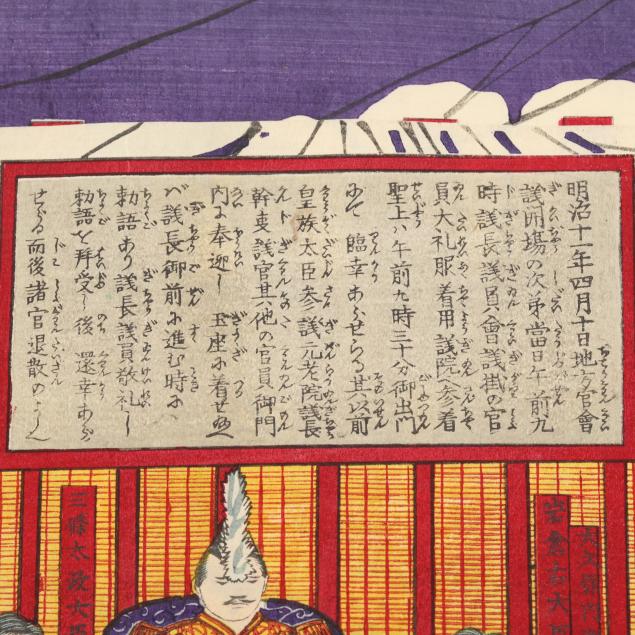 明治十一年四月十日地方官會
議開場の次第當日午前九
時議長議員會議掛の官
員大礼服着用議院へ参着
聖上ハ午前九時三十分御出門
にて臨幸あらせらる其以前
皇族太臣参議元老院議長
幹事議官其他の官員御門
内に奉迎し玉座に着せ給へ
バ議長御前に進む時に
勅語あり議長議員敬礼し
勅語を拝受し後還幸あら
せらる而後諸官退散のよし
岩倉右大臣
三條太政大臣